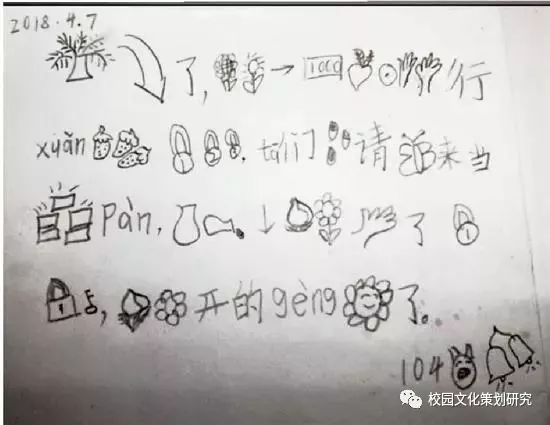 2018.4.7
了, 1000 行
xuǎn . tā们 请 来当
pàn, 了
, 开的gèng 了。
104
校园文化策划研究